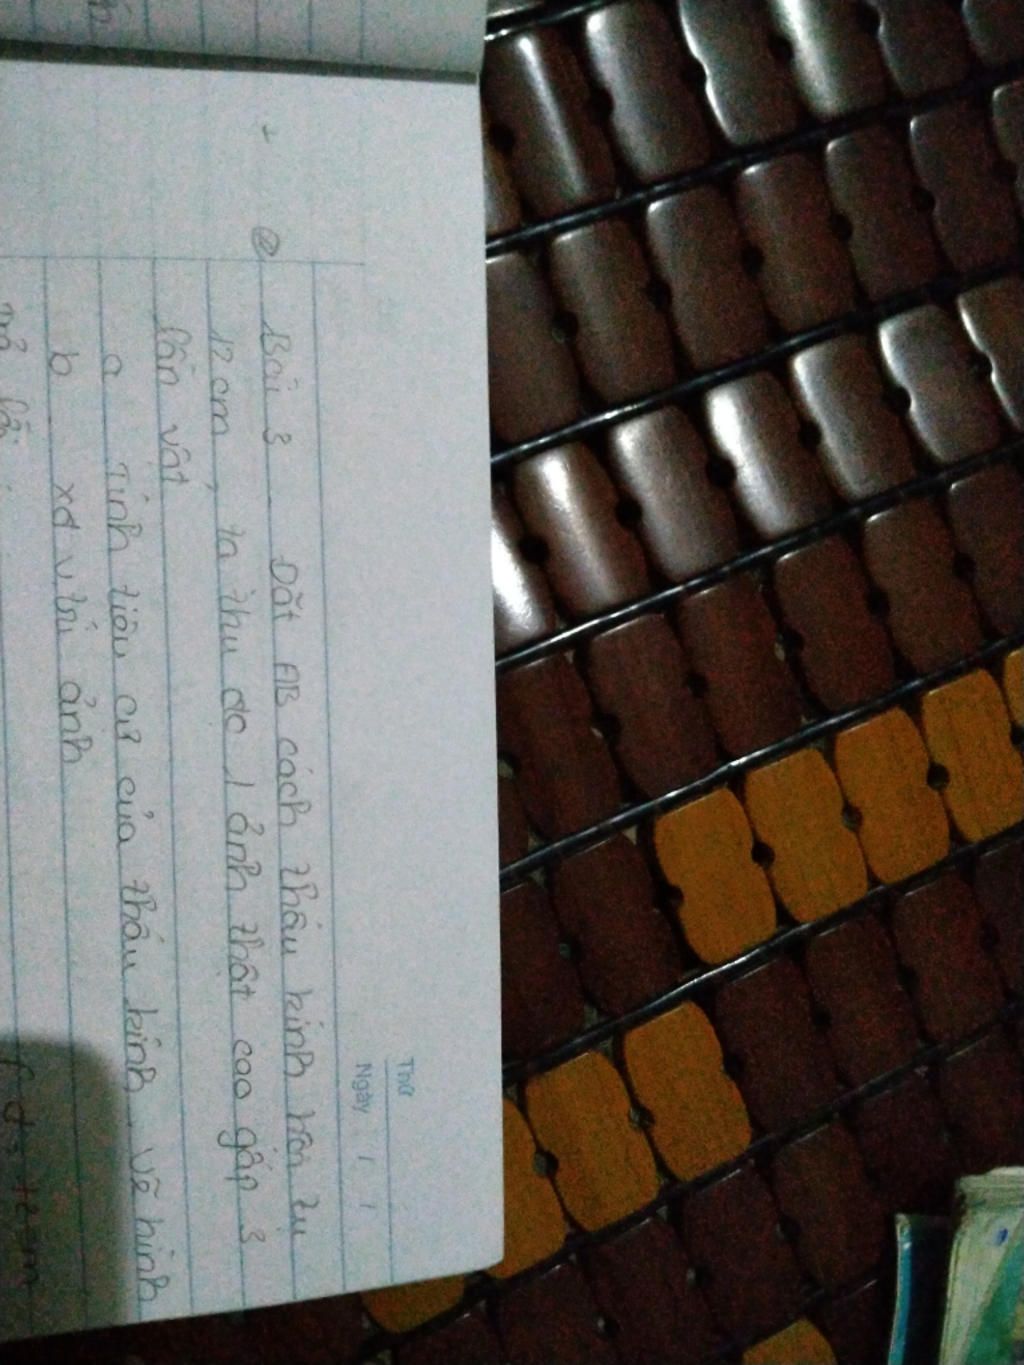 Thứ
Ngày / /
Bài 3 Đặt AB cách thấu kính hội tụ
12 cm, ta thu đc 1 ảnh thật cao gấp 3
lần vật
a Tính tiêu cự của thấu kính. vẽ hình
b xđ v trí ảnh